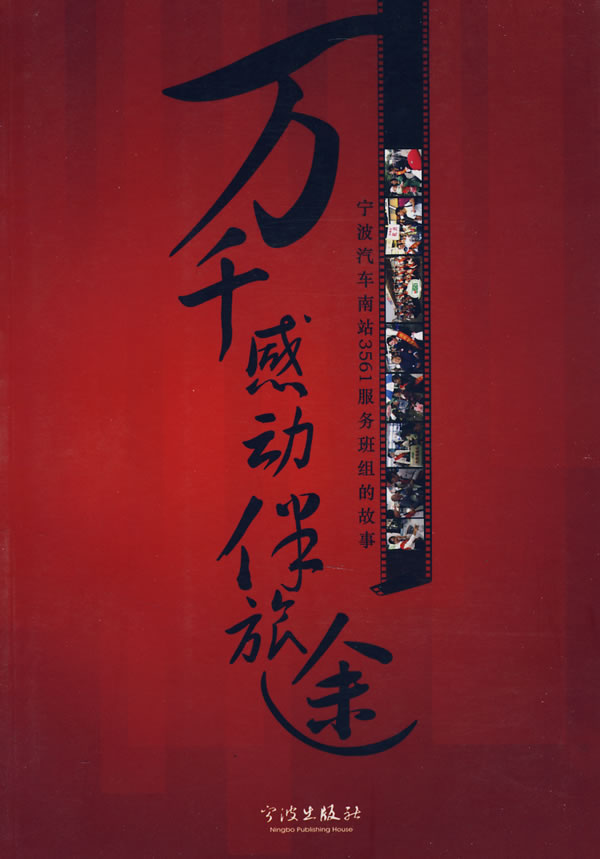 万千感动伴旅途
宁波汽车南站3561服务班组的故事
宁波出版社
Ningbo Publishing House